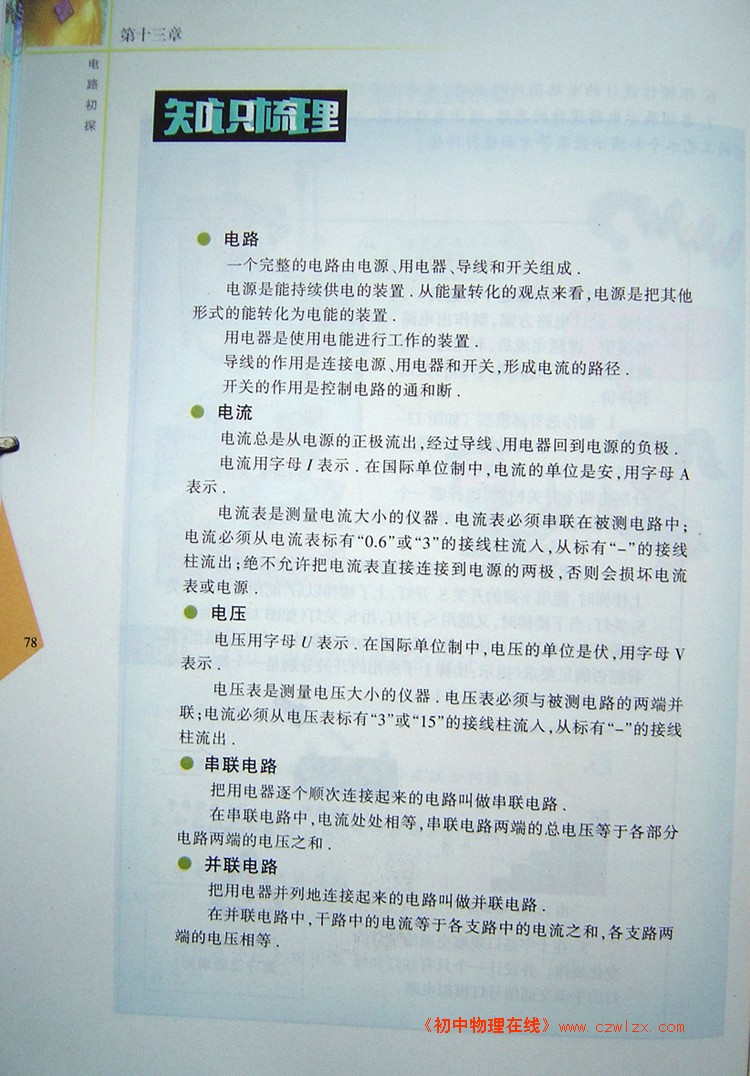 第十三章
电路初探
知识梳理
电路
一个完整的电路由电源、用电器、导线和开关组成．
电源是能持续供电的装置．从能量转化的观点来看，电源是把其他
形式的能转化为电能的装置．
用电器是使用电能进行工作的装置．
导线的作用是连接电源、用电器和开关，形成电流的路径．
开关的作用是控制电路的通和断．
电流
电流总是从电源的正极流出，经过导线、用电器回到电源的负极．
电流用字母 I 表示．在国际单位制中，电流的单位是安，用字母 A
表示．
电流表是测量电流大小的仪器．电流表必须串联在被测电路中；
电流必须从电流表标有“0.6”或“3”的接线柱流入，从标有“－”的接线
柱流出；绝不允许把电流表直接连接到电源的两极，否则会损坏电流
表或电源．
电压
电压用字母 U 表示．在国际单位制中，电压的单位是伏，用字母 V
表示．
电压表是测量电压大小的仪器．电压表必须与被测电路的两端并
联；电流必须从电压表标有“3”或“15”的接线柱流入，从标有“－”的接线
柱流出．
串联电路
把用电器逐个顺次连接起来的电路叫做串联电路．
在串联电路中，电流处处相等，串联电路两端的总电压等于各部分
电路两端的电压之和．
并联电路
把用电器并列地连接起来的电路叫做并联电路．
在并联电路中，干路中的电流等于各支路中的电流之和，各支路两
端的电压相等．
78
《初中物理在线》www.czwlzx.com